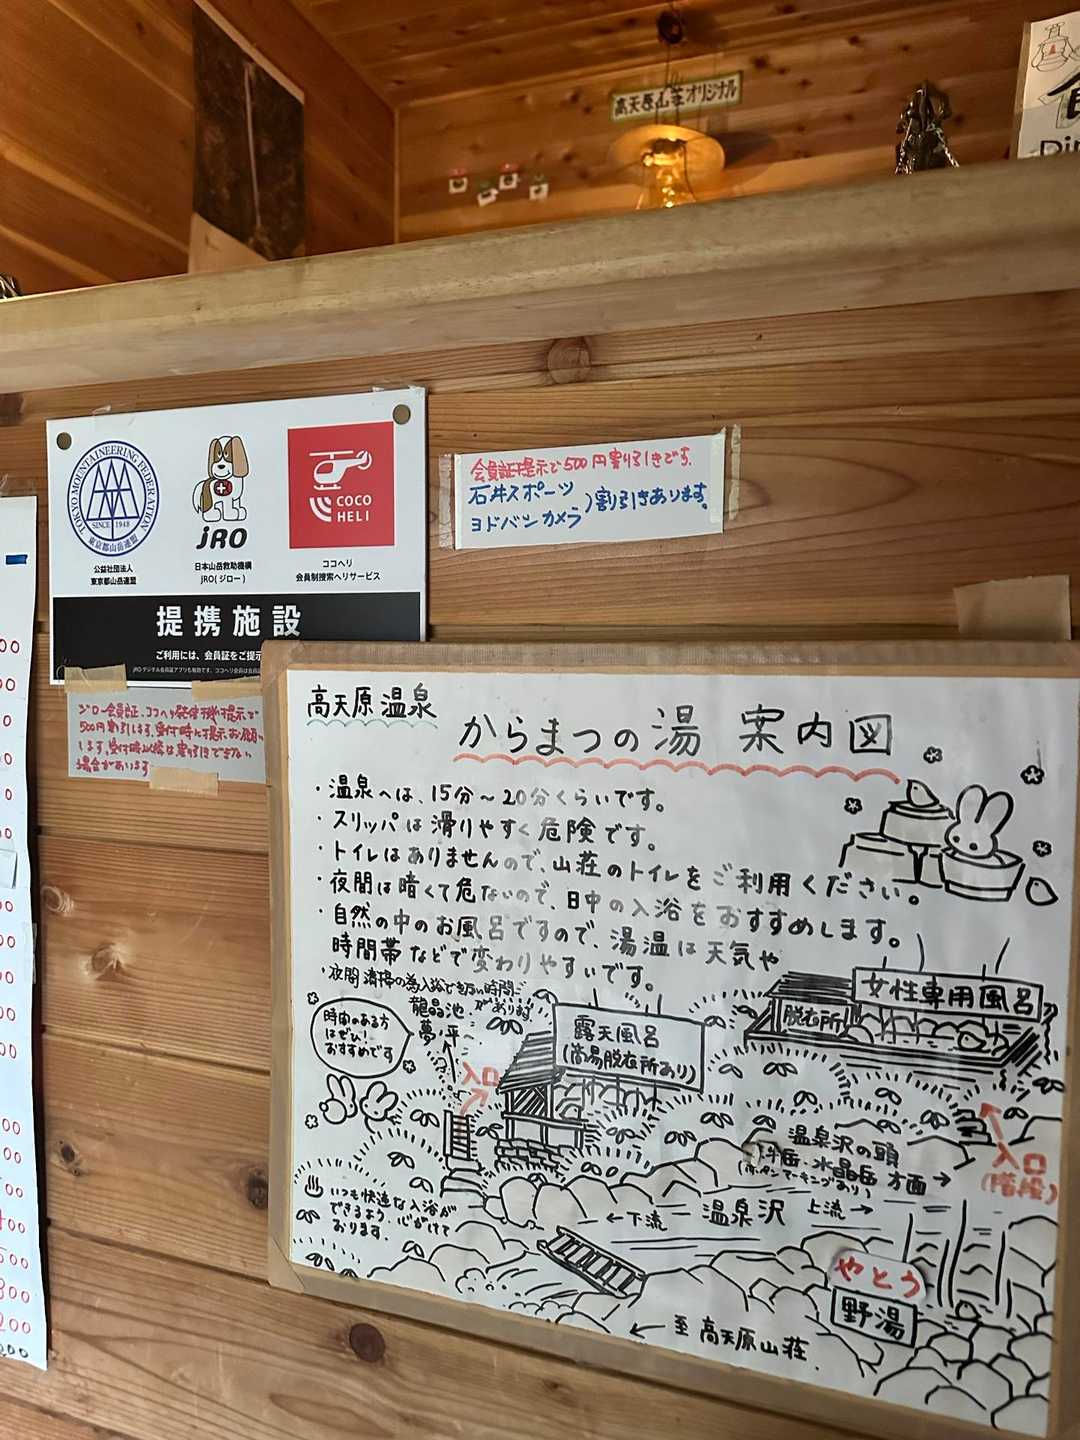 高天原山荘オリジナル
TOKYO MOUNTAINEERING FEDERATION
SINCE 1948
東京都山岳連盟
公益社団法人
東京都山岳連盟
jRO
日本山岳救助機構
JRO(ジロー)
COCO
HELI
ココヘリ
会員制捜索ヘリサービス
提携施設
ご利用には、会員証をご提示
会員証提示で500円割り引きです。
石井スポーツ
ヨドバシカメラ
)割引きあります。
ジロー会員証、ココヘリ発信機提示で
500円割引します。受付時に提示お願い
します。受付時以降は割引きできない
場合があります
高天原温泉
からまつの湯 案内図
・温泉へは、15分〜20分くらいです。
・スリッパは滑りやすく危険です。
・トイレはありませんので、山荘のトイレをご利用ください。
・夜間は暗くて危ないので、日中の入浴をおすすめします。
・自然の中のお風呂ですので、湯温は天気や
時間帯などで変わりやすいです。
・夜間清掃の為入浴できない時間が
あります。
龍晶池
夢ノ平へ
時間のある方
はぜひ!
おすすめです
入口
露天風呂
(簡易脱衣所あり)
女性専用風呂
脱衣所
入口
(階段)
温泉沢の頭
水晶岳 方面→
(赤ペンマーキングあり)
←下流 温泉沢 上流→
いつも快適な入浴が
できるよう、心がけて
おります。
やとう
野湯
← 至 高天原山荘